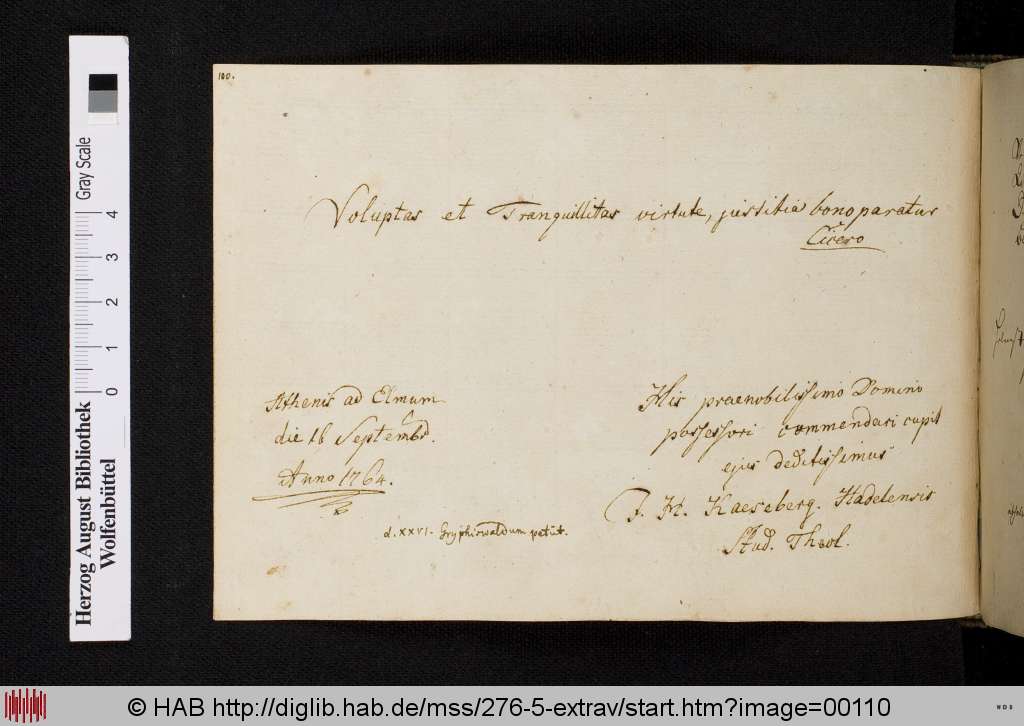 100.
Voluptas et Tranquillitas virtute, justitia bono paratur
Cicero
Athenis ad Elmum
die 16 Septembr.
Anno 1764.
His praenobilissimo Domino
possessori commendari cupit
ejus deditissimus
J. H. Kaeseberg. Hadelensis
Stud. Theol.
d. XXVI. Gryphiswaldum petiit.
Herzog August Bibliothek
Wolfenbüttel
Gray Scale
0 1 2 3 4
© HAB http://diglib.hab.de/mss/276-5-extrav/start.htm?image=00110
WDB